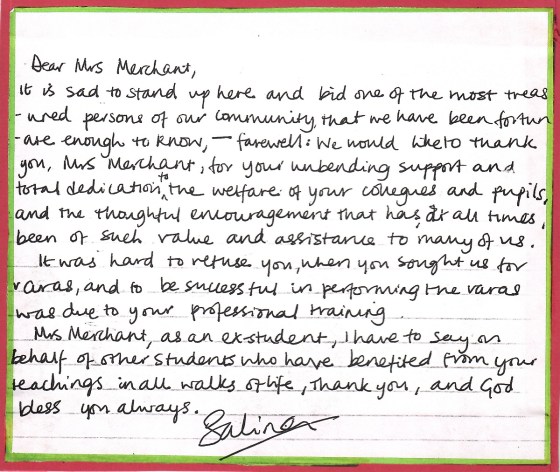 Dear Mrs Merchant,
It is sad to stand up here and bid one of the most treas
-ured persons of our community, that we have been fortun
-are enough to know, — farewell. We would like to thank
you, Mrs Merchant, for your unbending support and
total dedication, to the welfare of your collegues and pupils,
and the thoughtful encouragement that has, at all times,
been of such value and assistance to many of us.
It was hard to refuse you, when you sought us for
varas, and to be successful in performing the varas
was due to your professional training.
Mrs Merchant, as an ex-student, I have to say on
behalf of other students who have benefited from your
teachings in all walks of life, thank you, and God
bless you always.
Salina